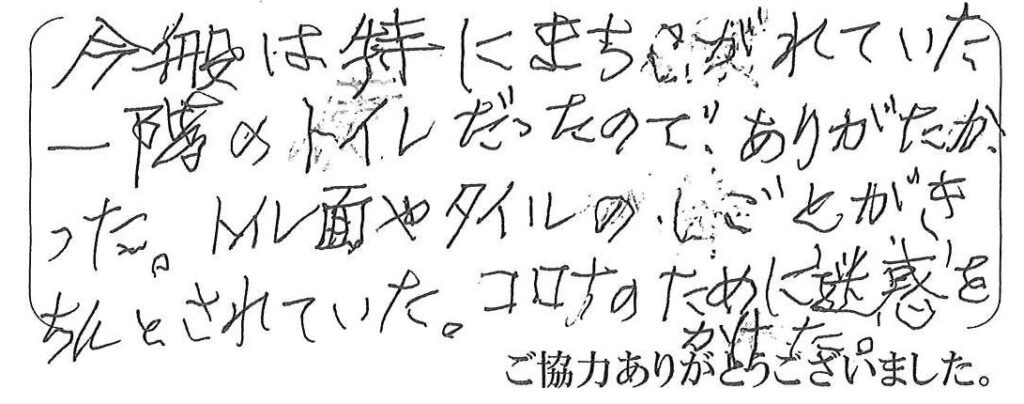 今般は特にまちこがれていた
一階のトイレだったので、ありがたか
った。トイレ面やタイルのしごとがき
ちんとされていた。コロナのために迷惑を
かけた。
ご協力ありがとうございました。